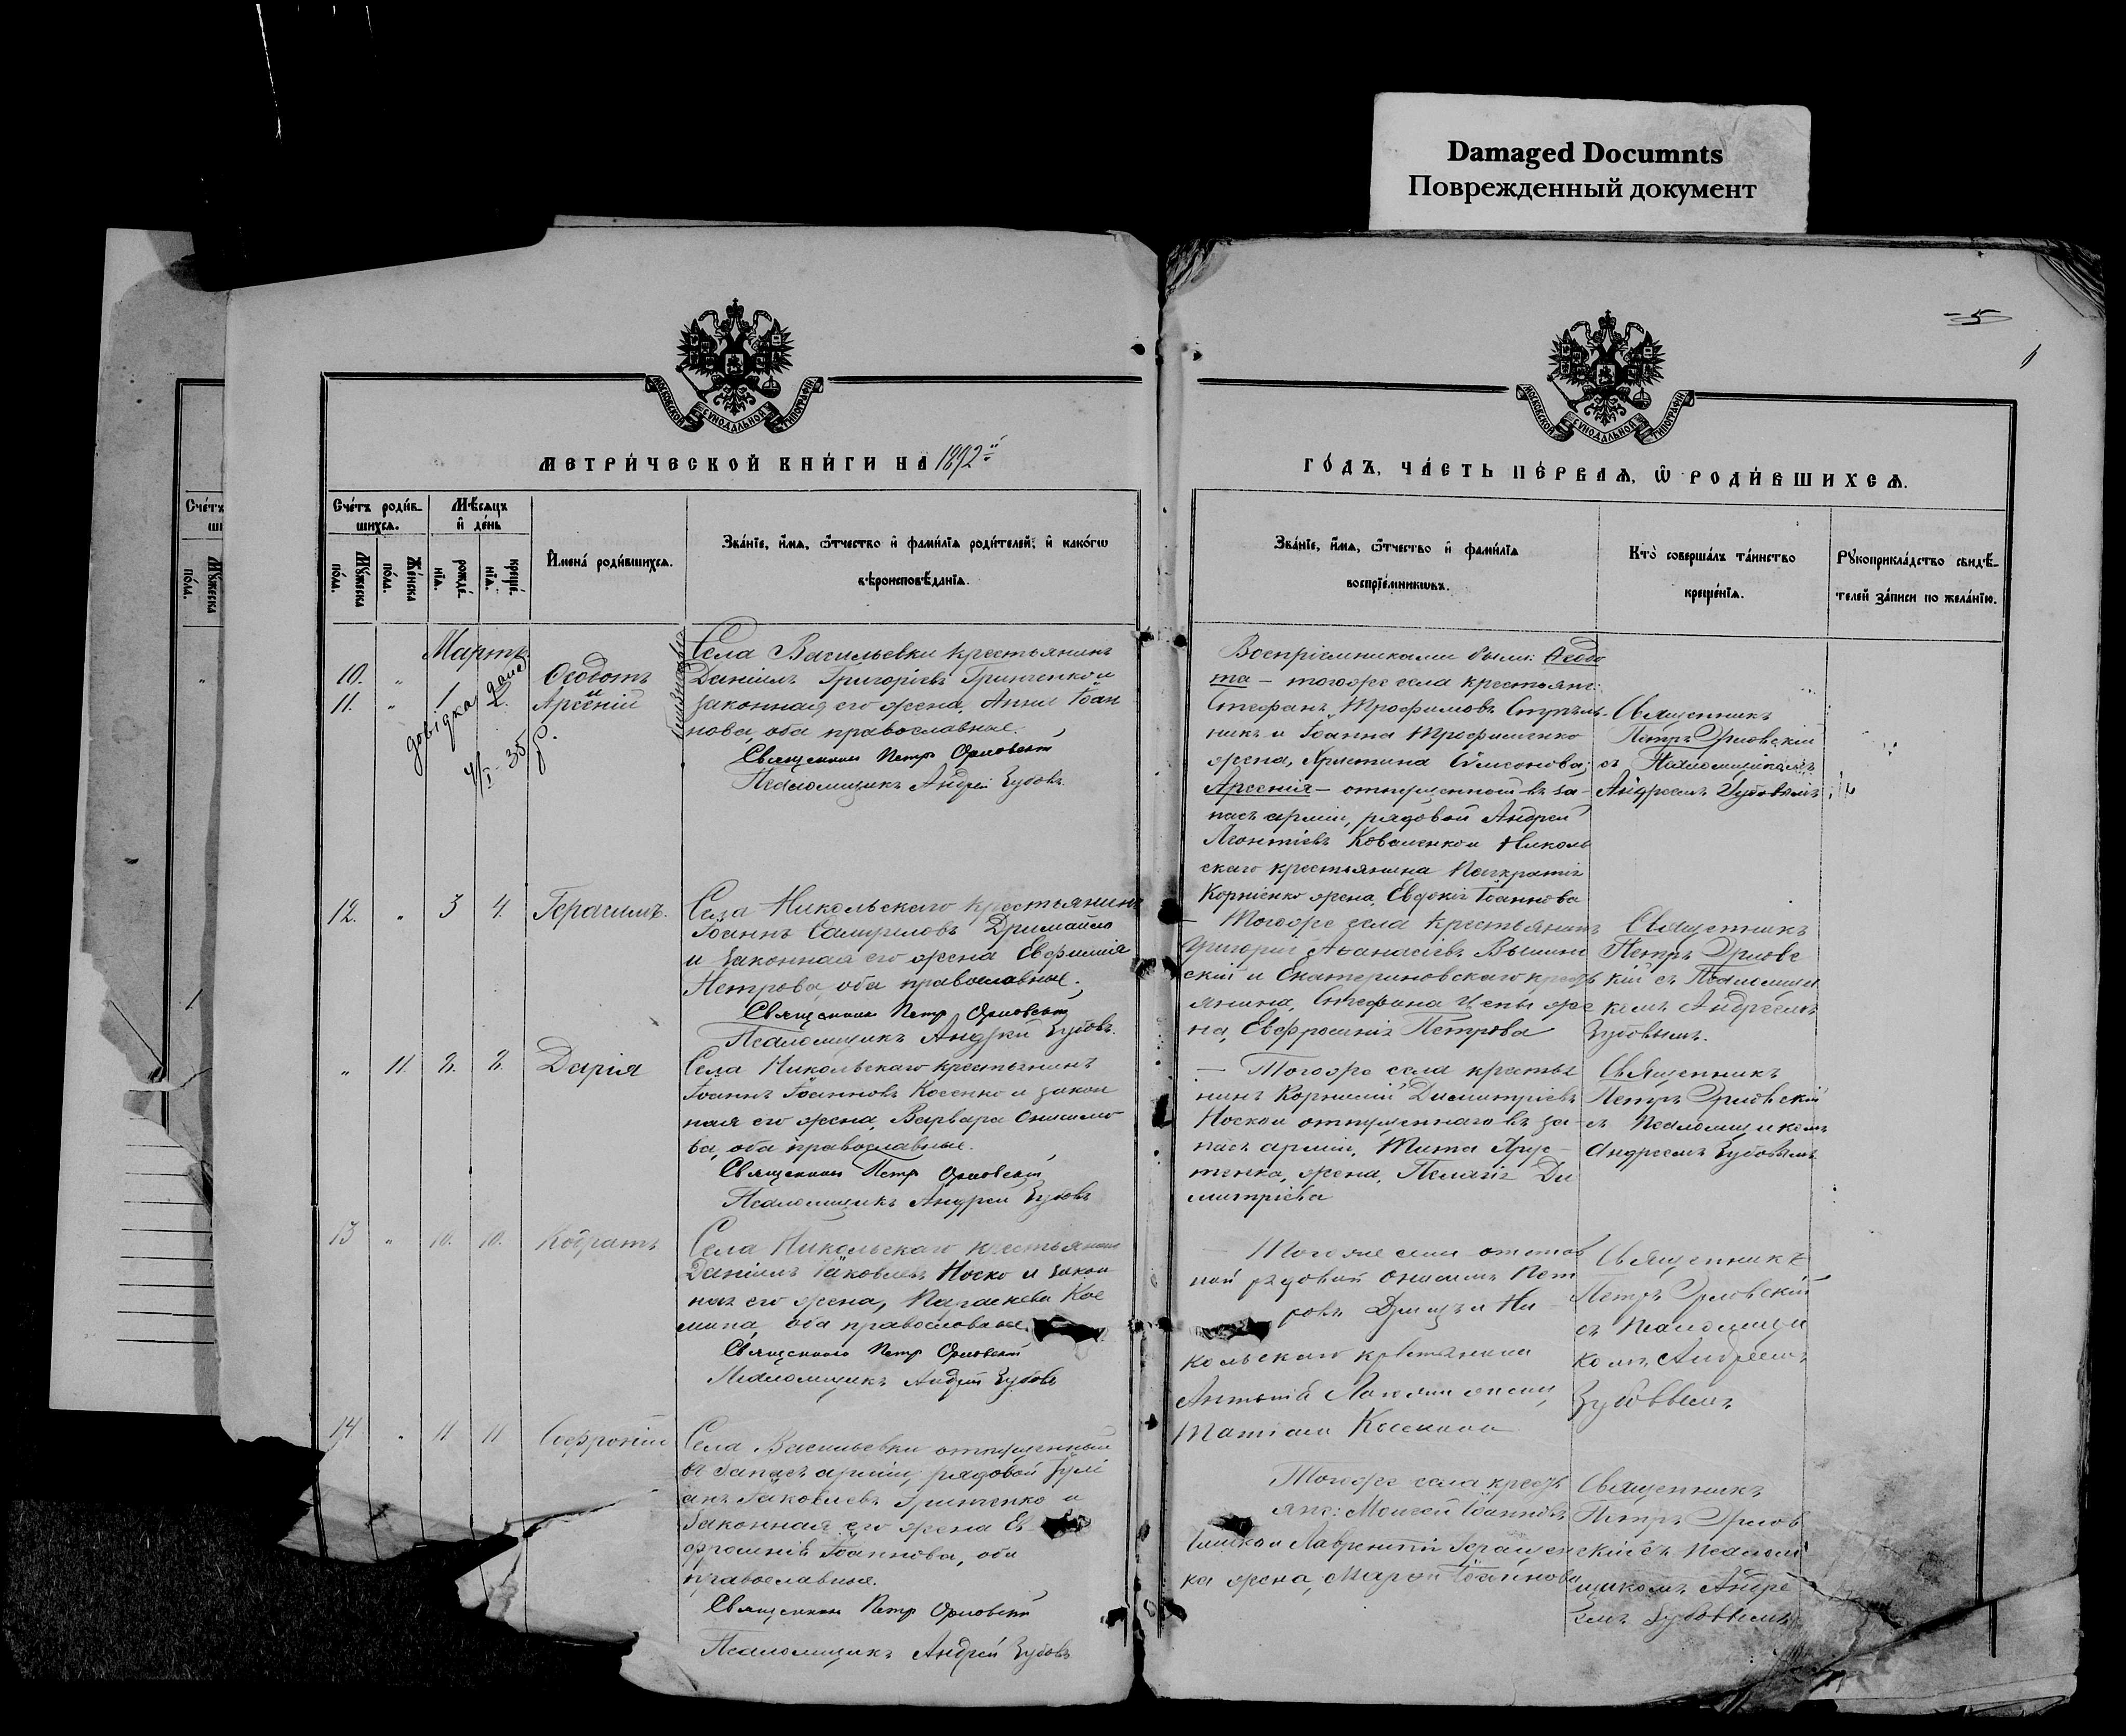 Damaged Documnts
Поврежденный документ
5
МОСКОВСКОЙ СѴНОДАЛЬНОЙ ТИПОГРАФІИ
МОСКОВСКОЙ СѴНОДАЛЬНОЙ ТИПОГРАФІИ
МЕТРИ́ЧЕСКОЙ КНИ́ГИ НА 1892й
ГО́ДЪ, ЧА́СТЬ ПЕ́РВАЯ, Ѡ РОДИ́ВШИХСЯ.
Сче́тъ роди́в-
шихся.
Мѣсяцъ
и де́нь
Мꙋ́жеска по́ла.
Же́нска по́ла.
рожде́нїѧ.
креще́нїѧ.
Имена́ роди́вшихсѧ.
Зва́нїе, и́мѧ, ѻ҆́тчество и фами́лїѧ роди́телей, и како́гѡ
вѣроисповѣ́данїѧ.
Зва́нїе, и́мѧ, ѻ҆́тчество и фами́лїѧ
воспрїе́мникѡвъ.
Кто̀ соверша́лъ та́инство
креще́нїѧ.
Рꙋкоприкла́дство свидѣ́-
телей за́писи по жела́нїю.
Мартъ
10. „ Ѳеодотъ
11. „ 1 2. и Арсеній
довідка дана
4/I 35 р.
близнецы
Села Васильевки крестьянинъ
Даніилъ Григоріевъ Гринченко и
законная его жена, Анна Іоан
нова, оба православные.
Священникъ Петръ Орловскій
Псаломщикъ Андрей Зубовъ.
Воспріемниками были: Ѳеодо
та – тогоже села крестьяне:
Стефанъ Трофимовъ
никъ и Іоанна Трофименко
жена, Христина Симеонова;
Арсенія – отпущенной въ за-
пасъ арміи, рядовой Андрей
Леонтіевъ Коваленко и Николь
скаго крестьянина Панкратія
Корніенко жена, Евдокія Іоаннова
Священникъ
Петръ Орловскій
съ Псаломщикомъ
Андреемъ Зубовымъ
12. „ 3 4. Герасимъ.
Села Никольскаго крестьянинъ
Іоаннъ Самуиловъ Дримайло
и законная его жена Евфимія
Петрова, оба православные.
Священникъ Петръ Орловскій
Псаломщикъ Андрей Зубовъ.
– Тогоже села крестьянинъ
Григорій Аѳанасіевъ Вышин
скій и Екатериновскаго крест
янина, Стефана Цепы же
на, Евфросинія Петрова
Священникъ
Петръ Орловс
кій съ Псаломщи
комъ Андреемъ
Зубовымъ.
„ 11. 2. 2. Дарія
Села Никольскаго крестьянинъ
Іоаннъ Іоанновъ Косенко и закон
ная его жена, Варвара Онисимо
ва, оба православные.
Священникъ Петръ Орловскій
Псаломщикъ Андрей Зубовъ
– Тогоже села крестья
нинъ Корнилій Димитріевъ
Носко и отпущеннаго въ за-
пасъ арміи, Тита Хрус
тенка, жена, Пелагія Ди
митріева
Священникъ
Петръ Орловскій
съ Псаломщикомъ
Андреемъ Зубовымъ
13 „ 10. 10. Кодратъ
Села Никольскаго крестьянинъ
Даніилъ Іаковлевъ Носко и закон
ная его жена, Параскева Кос
мина, оба православные.
Священникъ Петръ Орловскій
Псаломщикъ Андрей Зубовъ
– Тогоже села отстав
ной рядовой Онисимъ Пет
ровъ и Ни
кольскаго крестьянина
жена,
Священникъ
Петръ Орловскій
съ Псаломщи
комъ Андреемъ
Зубовымъ
14 „ 11 11 Софроній
Села Васильевки отпущенный
въ запасъ арміи, рядовой Іулі
анъ Іаковлевъ Гринченко и
законная его жена Ев
фросинія Іоаннова, оба
православные.
Священникъ Петръ Орловскій
Псаломщикъ Андрей Зубовъ
Тогоже села крест
яне: Моисей Іоанновъ
и Лаврентія Геращен
ка жена, Марфа Іоаннова
Священникъ
Петръ Орлов
скій съ Псалом
щикомъ Андре
емъ Зубовымъ